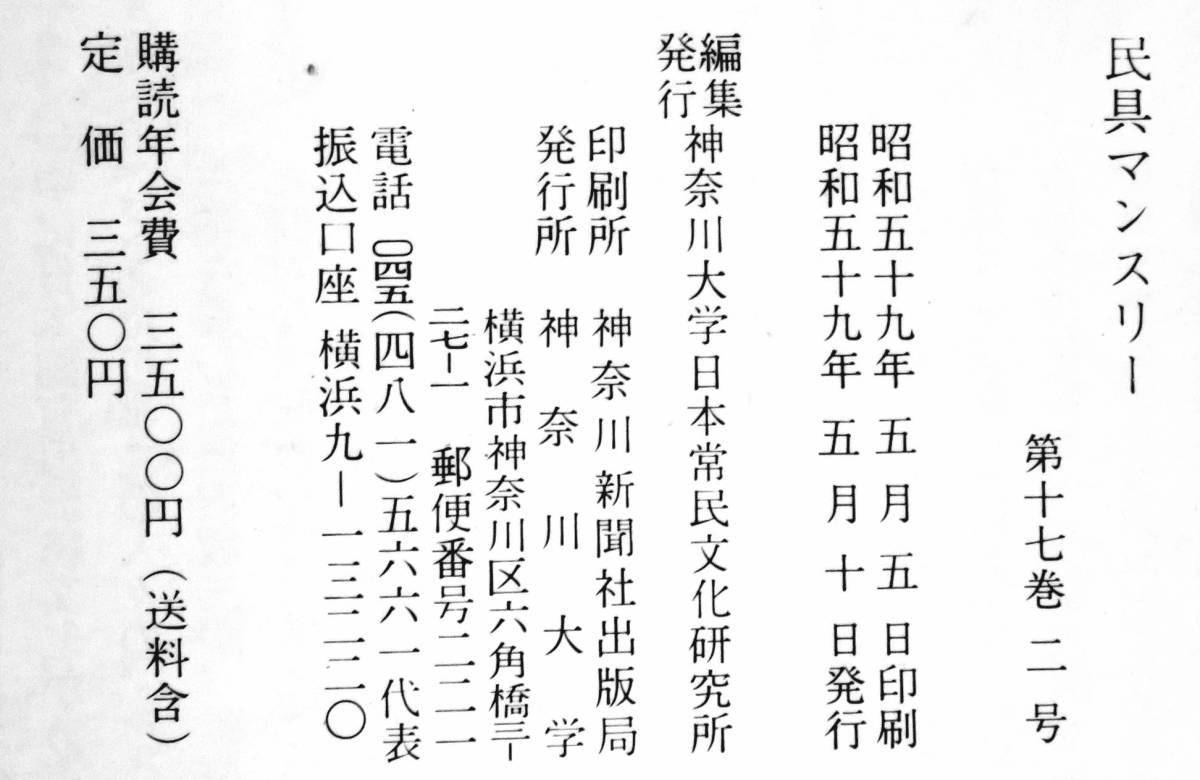 民具マンスリー
第十七巻 二号
昭和五十九年 五月 五日印刷
昭和五十九年 五月 十日発行
編集
発行
神奈川大学日本常民文化研究所
印刷所 神奈川新聞社出版局
発行所 神奈川大学
横浜市神奈川区六角橋三−
二七−一 郵便番号二二一
電話 〇四五(四八一)五六六一代表
振込口座 横浜九−一三二二〇
購読年会費 三五〇〇円(送料含)
定価 三五〇円